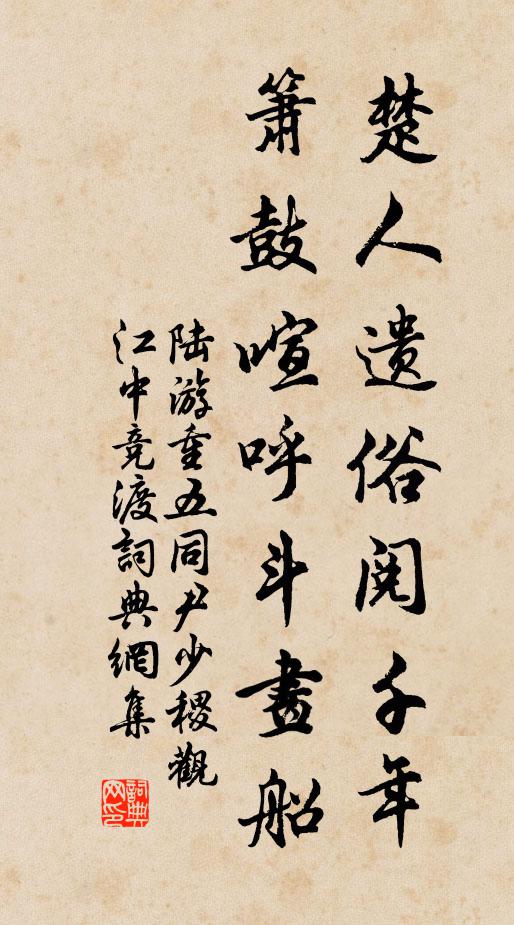 楚人遗俗阅千年
箫鼓喧呼斗畫船
陆游重五同尹少稷觀
江中竞渡詞典網集
詞典网印